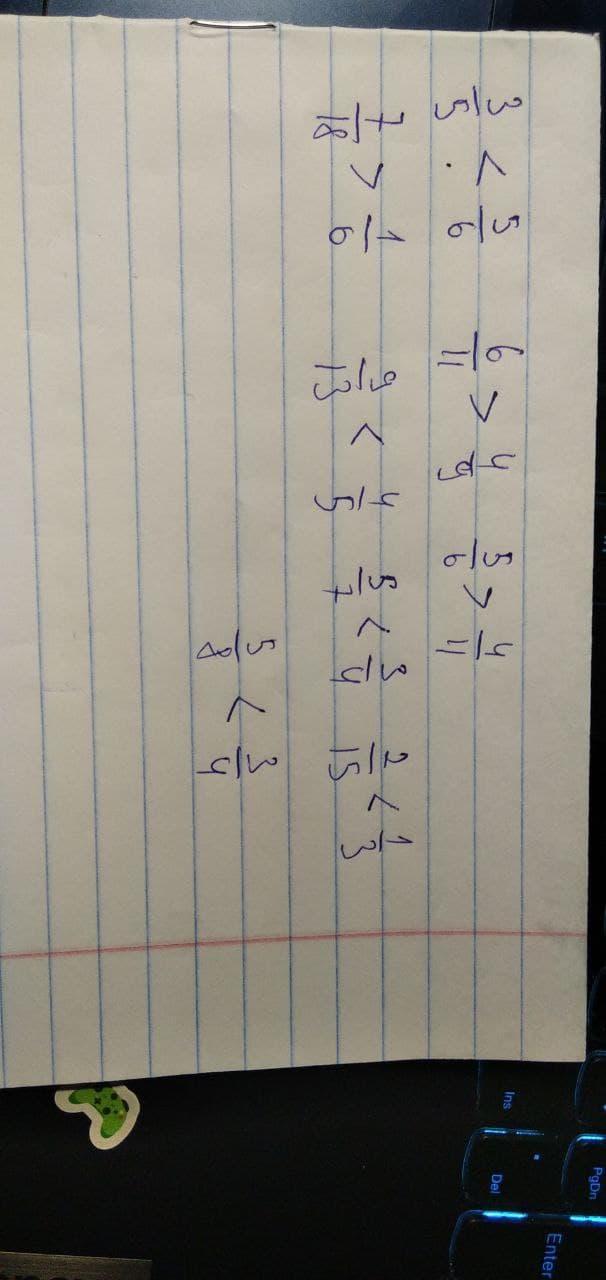 3/5 < 5/6 6/11 > 4/9 5/6 > 4/11
7/18 > 1/6 9/13 < 4/5 5/7 < 3/4 2/15 < 1/3
5/8 < 3/4
PgDn
Ins
Del
Enter